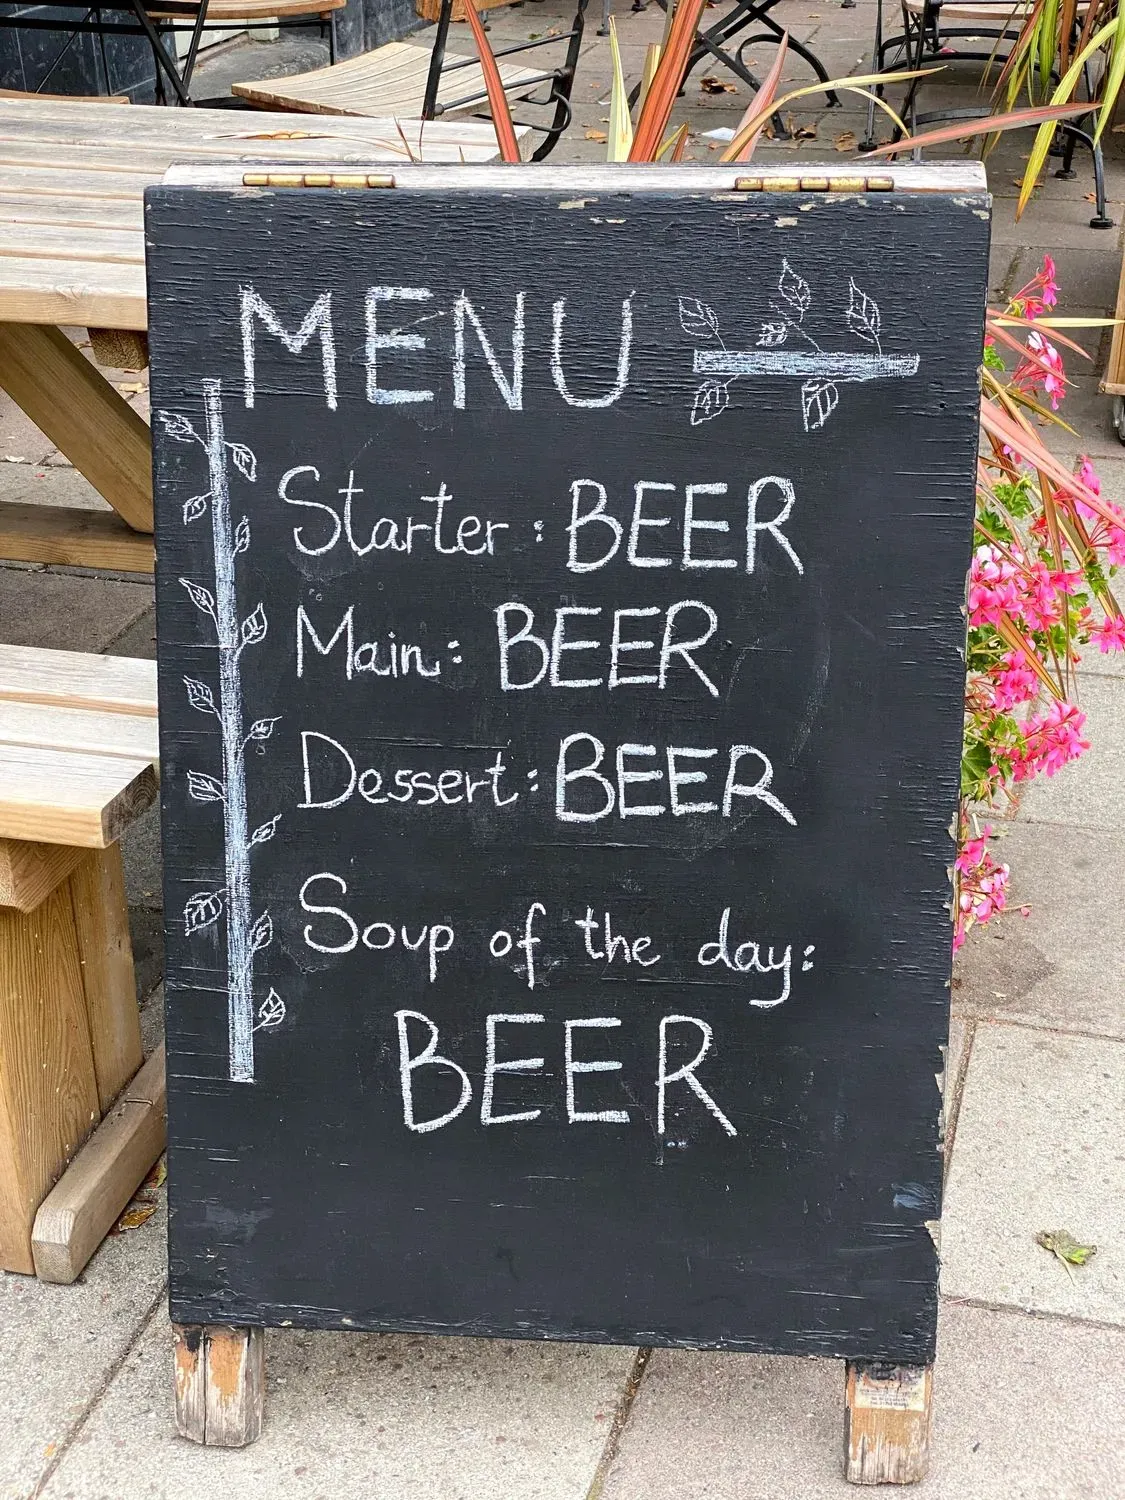 MENU
Starter : BEER
Main: BEER
Dessert: BEER
Soup of the day:
BEER